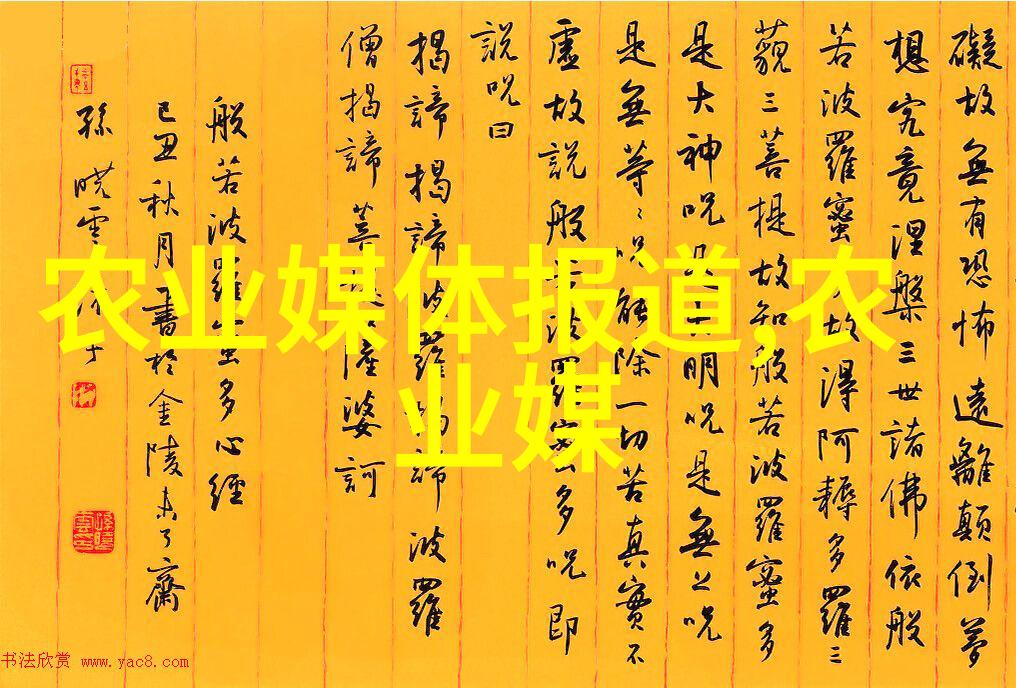 礙故無有恐怖遠離顛倒夢
想究竟涅槃三世諸佛依般
若波羅蜜多故得阿耨多羅三
藐三菩提故知般若波羅蜜多
是大神咒是大明咒是無上咒
是無等〻咒能除一切苦真實不
虛故說般若波羅蜜多咒即
說咒曰
揭諦揭諦波羅揭諦波羅
僧揭諦菩提薩婆訶
般若波羅蜜多心經
己丑秋月書於金陵未了齋
孫曉雲
农业媒体报道,农
业媒
书法欣赏 www.yac8.com